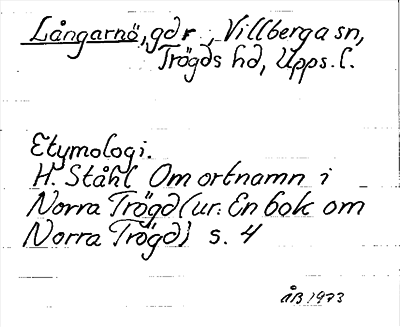 Långarnö, gdr, Villberga sn,
Trögds hd, Upps. l.
Etymologi.
H. Ståhl Om ortnamn i
Norra Trögd (ur: En bok om
Norra Trögd) s. 4
ÅB 1973